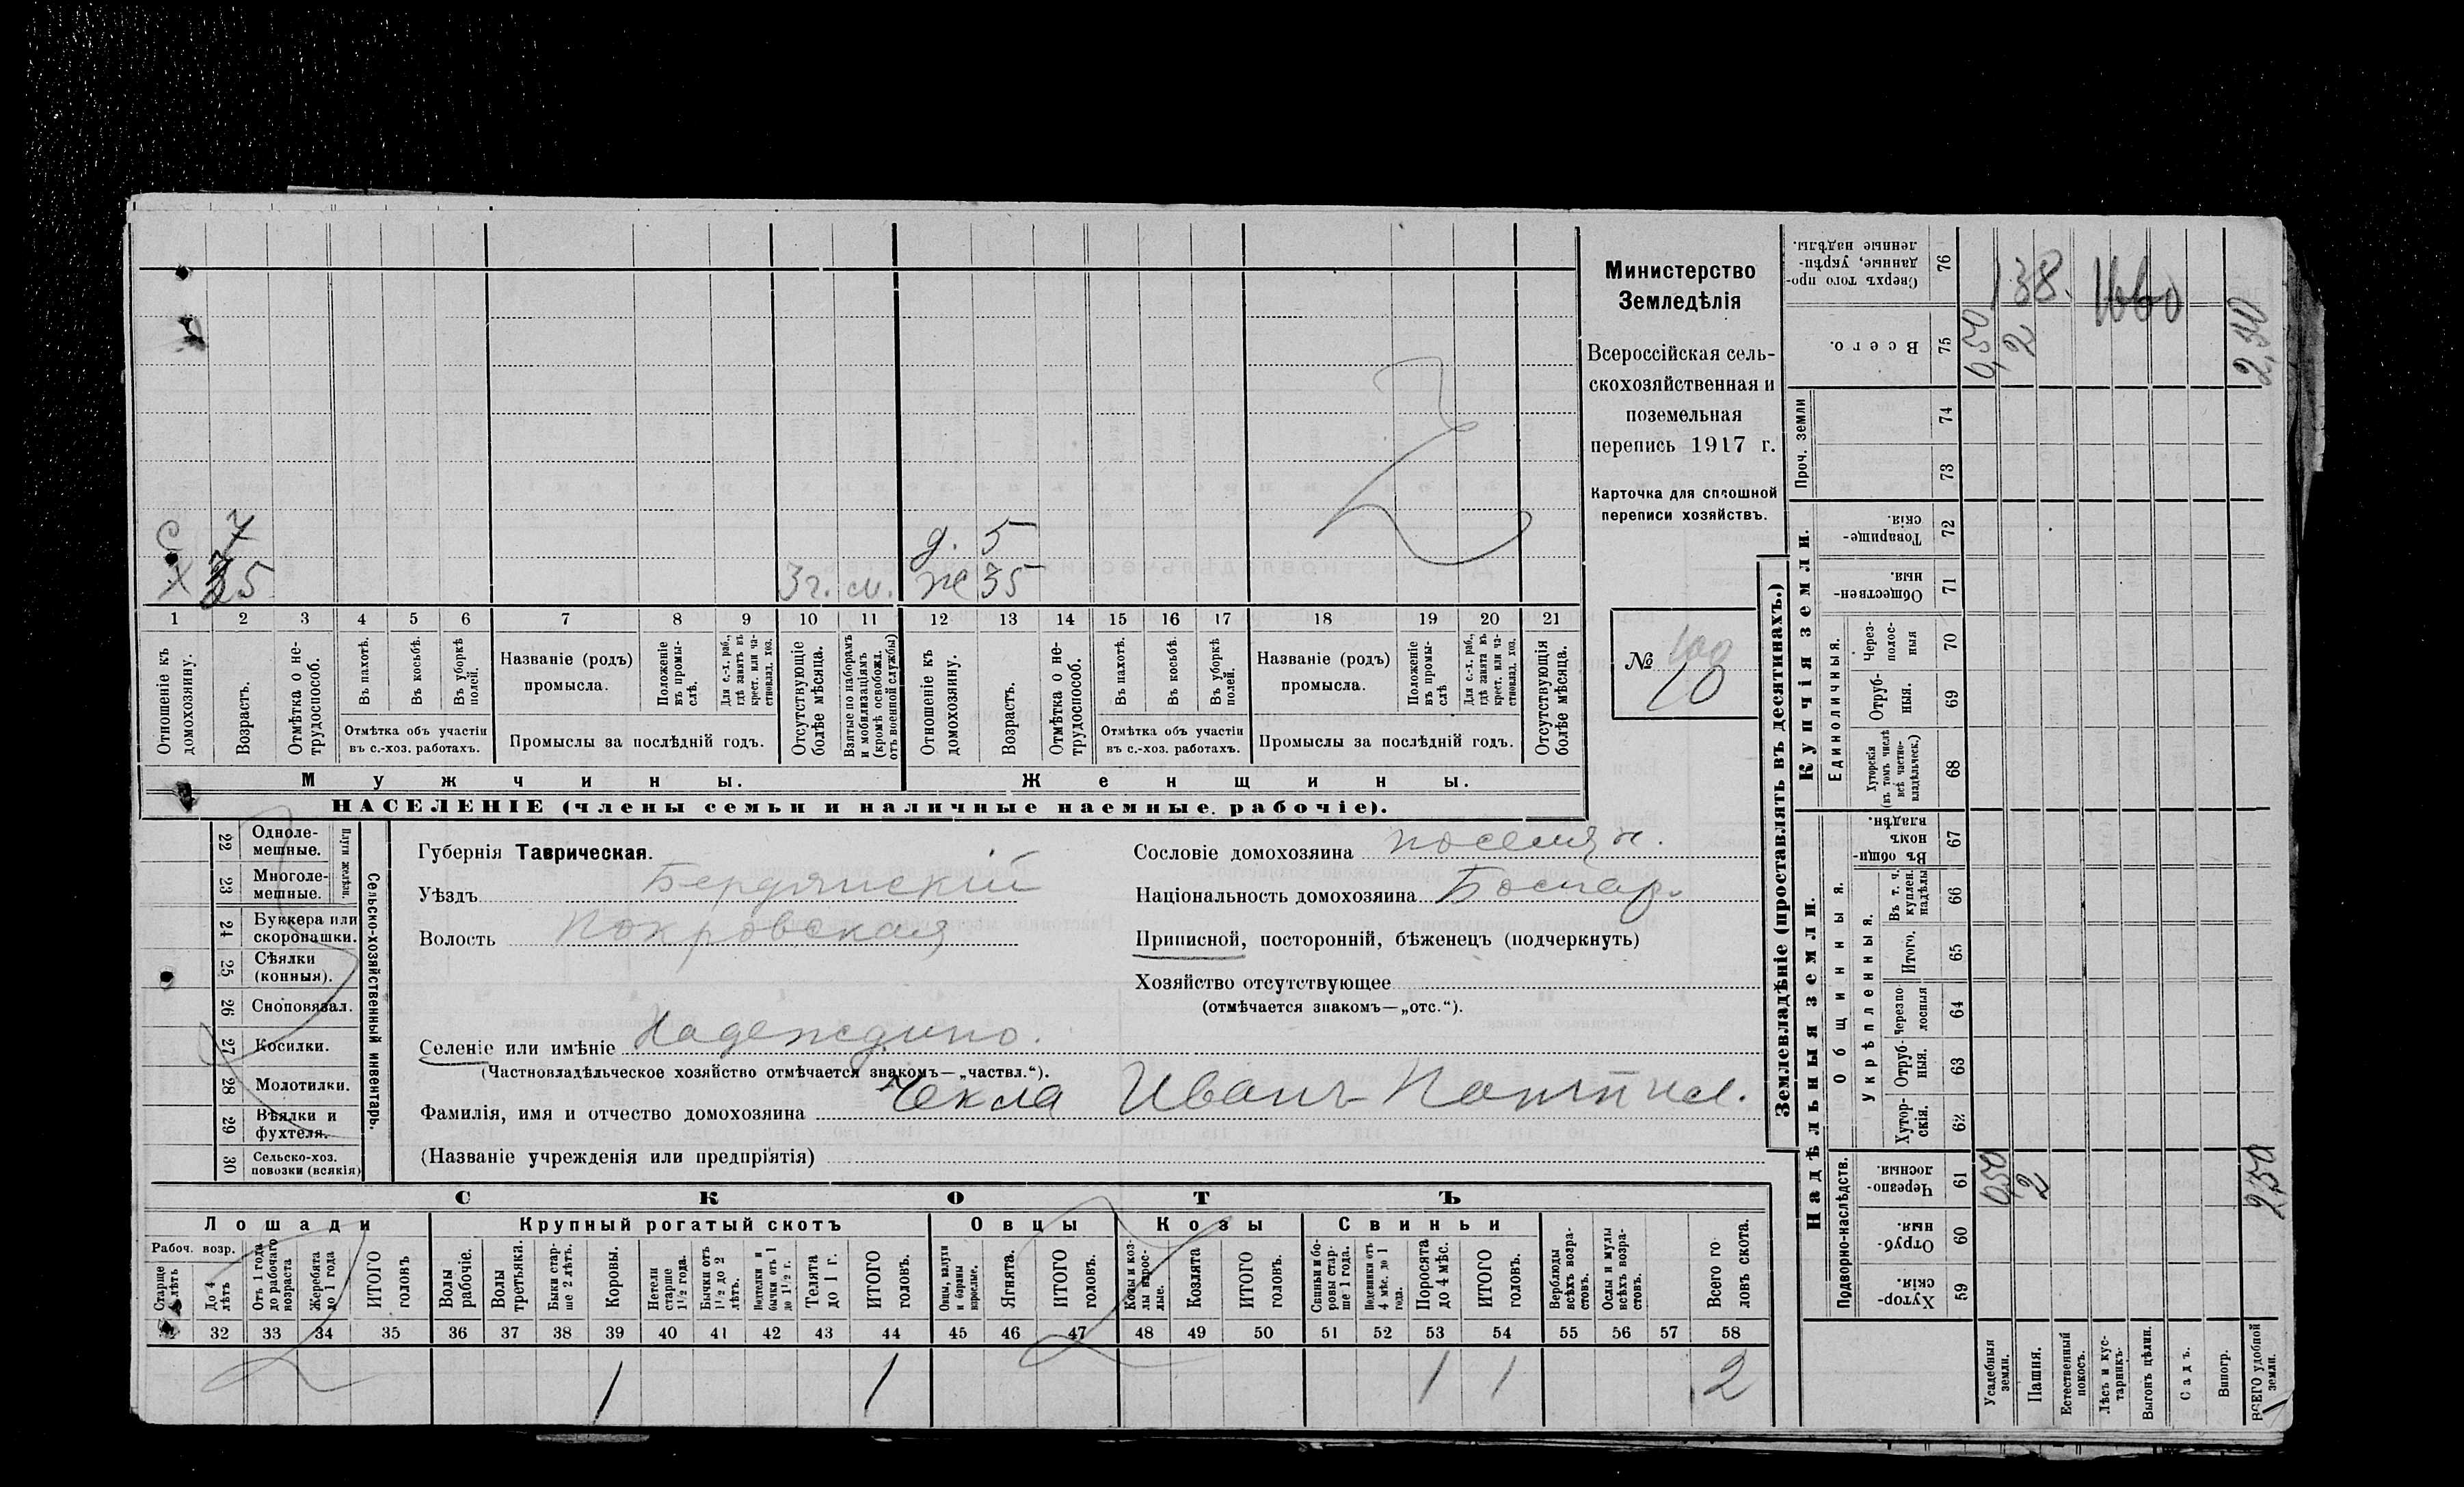 Министерство
Земледѣлія
Всероссійская сель-
скохозяйственная и
поземельная
перепись 1917 г.
Карточка для сплошной
переписи хозяйствъ.
№ 100
10
С 7 д. 5
Х 35 3 г. м. ж 35
1 2 3 4 5 6 7 8 9 10 11 12 13 14 15 16 17 18 19 20 21
Отношеніе къ домохозяину.
Возрастъ.
Отмѣтка о не-трудоспособ.
Въ пахотѣ.
Въ косьбѣ.
Въ уборкѣ полей.
Отмѣтка объ участіи въ с.-хоз. работахъ.
Названіе (родъ) промысла.
Положеніе въ промы-слѣ.
Для с.-х. раб., гдѣ занятъ въ крест. или ча-стновлад. хоз.
Промыслы за послѣдній годъ.
Отсутствующіе болѣе мѣсяца.
Взятые по наборамъ и мобилизаціямъ (кромѣ освобожд. отъ военной службы)
Отношеніе къ домохозяину.
Возрастъ.
Отмѣтка о не-трудоспособ.
Въ пахотѣ.
Въ косьбѣ.
Въ уборкѣ полей.
Отмѣтка объ участіи въ с.-хоз. работахъ.
Названіе (родъ) промысла.
Положеніе въ промы-слѣ
Для с.-х. раб., гдѣ занята въ крест. или ча-стновлад. хоз.
Промыслы за послѣдній годъ.
Отсутствующія болѣе мѣсяца.
Мужчины. Женщины.
НАСЕЛЕНІЕ (члены семьи и наличные наемные рабочіе).
Сельско-хозяйственный инвентарь.
Плуги желѣзн.
22 Одноле-мешные.
23 Многоле-мешные.
24 Буккера или скоропашки.
25 Сѣялки (конныя).
26 Сноповязал.
27 Косилки.
28 Молотилки.
29 Вѣялки и фухтеля.
30 Сельско-хоз. повозки (всякія)
Губернія Таврическая.
Уѣздъ Бердянскій
Волость Покровская
Селеніе или имѣніе Надеждино.
(Частновладѣльческое хозяйство отмѣчается знакомъ—„частвл.“).
Сословіе домохозяина поселян.
Національность домохозяина Болгар.
Приписной, посторонній, бѣженецъ (подчеркнуть)
Хозяйство отсутствующее
(отмѣчается знакомъ—„отс.“).
Фамилія, имя и отчество домохозяина Чекла Иванъ
(Названіе учрежденія или предпріятія)
СКОТЪ
Лошади Крупный рогатый скотъ Овцы Козы Свиньи
Рабоч. возр.
Старше 4 лѣтъ
До 4 лѣтъ
Отъ 1 года до рабочаго возраста
Жеребята до 1 года
ИТОГО головъ
Волы рабочіе.
Волы третьяка.
Быки стар-ше 2 лѣтъ.
Коровы.
Нетели старше 1½ года.
Бычки отъ 1½ до 2 лѣтъ.
Подтелки и бычки отъ 1 до 1½ г.
Телята до 1 г.
ИТОГО головъ.
Овцы, валухи и бараны взрослые.
Ягнята.
ИТОГО головъ.
Козы и коз-лы взрос-лые.
Козлята
ИТОГО головъ.
Свиньи и бо-ровы стар-ше 1 года.
Подсвинки отъ 4 мѣс. до 1 года.
Поросята до 4 мѣс.
ИТОГО головъ.
Верблюды всѣхъ возра-стовъ.
Ослы и мулы всѣхъ возра-стовъ.
Всего го ловъ скота.
32 33 34 35 36 37 38 39 40 41 42 43 44 45 46 47 48 49 50 51 52 53 54 55 56 57 58
1 1 1 1 2
Землевладѣніе (проставлять въ десятинахъ.)
Надѣльныя земли. Купчія земли. Проч. земли
Подворно-наслѣдств.
Общинныя.
Укрѣпленныя.
Единоличныя.
59 Хутор-скія.
60 Отруб-ныя.
61 Черезпо-лосныя.
62 Хутор-скія.
63 Отруб-ныя.
64 Черезпо-лосныя
65 Итого.
66 Въ т. ч. куплен. надѣлы
67 Въ общин-номъ владѣн.
68 Хуторскія (въ томъ числѣ всѣ частно-владѣльческ.)
69 Отруб-ныя.
70 Через-полос-ныя
71 Обществен-ныя.
72 Товарище-скія.
73
74
75 Всего.
76 Сверхъ того про-данные, укрѣп-ленные надѣлы.
Усадебныя земли. 0,50 0,50
Пашня. 2 2
Естественный покосъ.
Лѣсъ и кус-тарникъ.
Выгонъ цѣлин.
Садъ.
Виногр.
ВСЕГО удобной земли. 2,50 2,50
138.